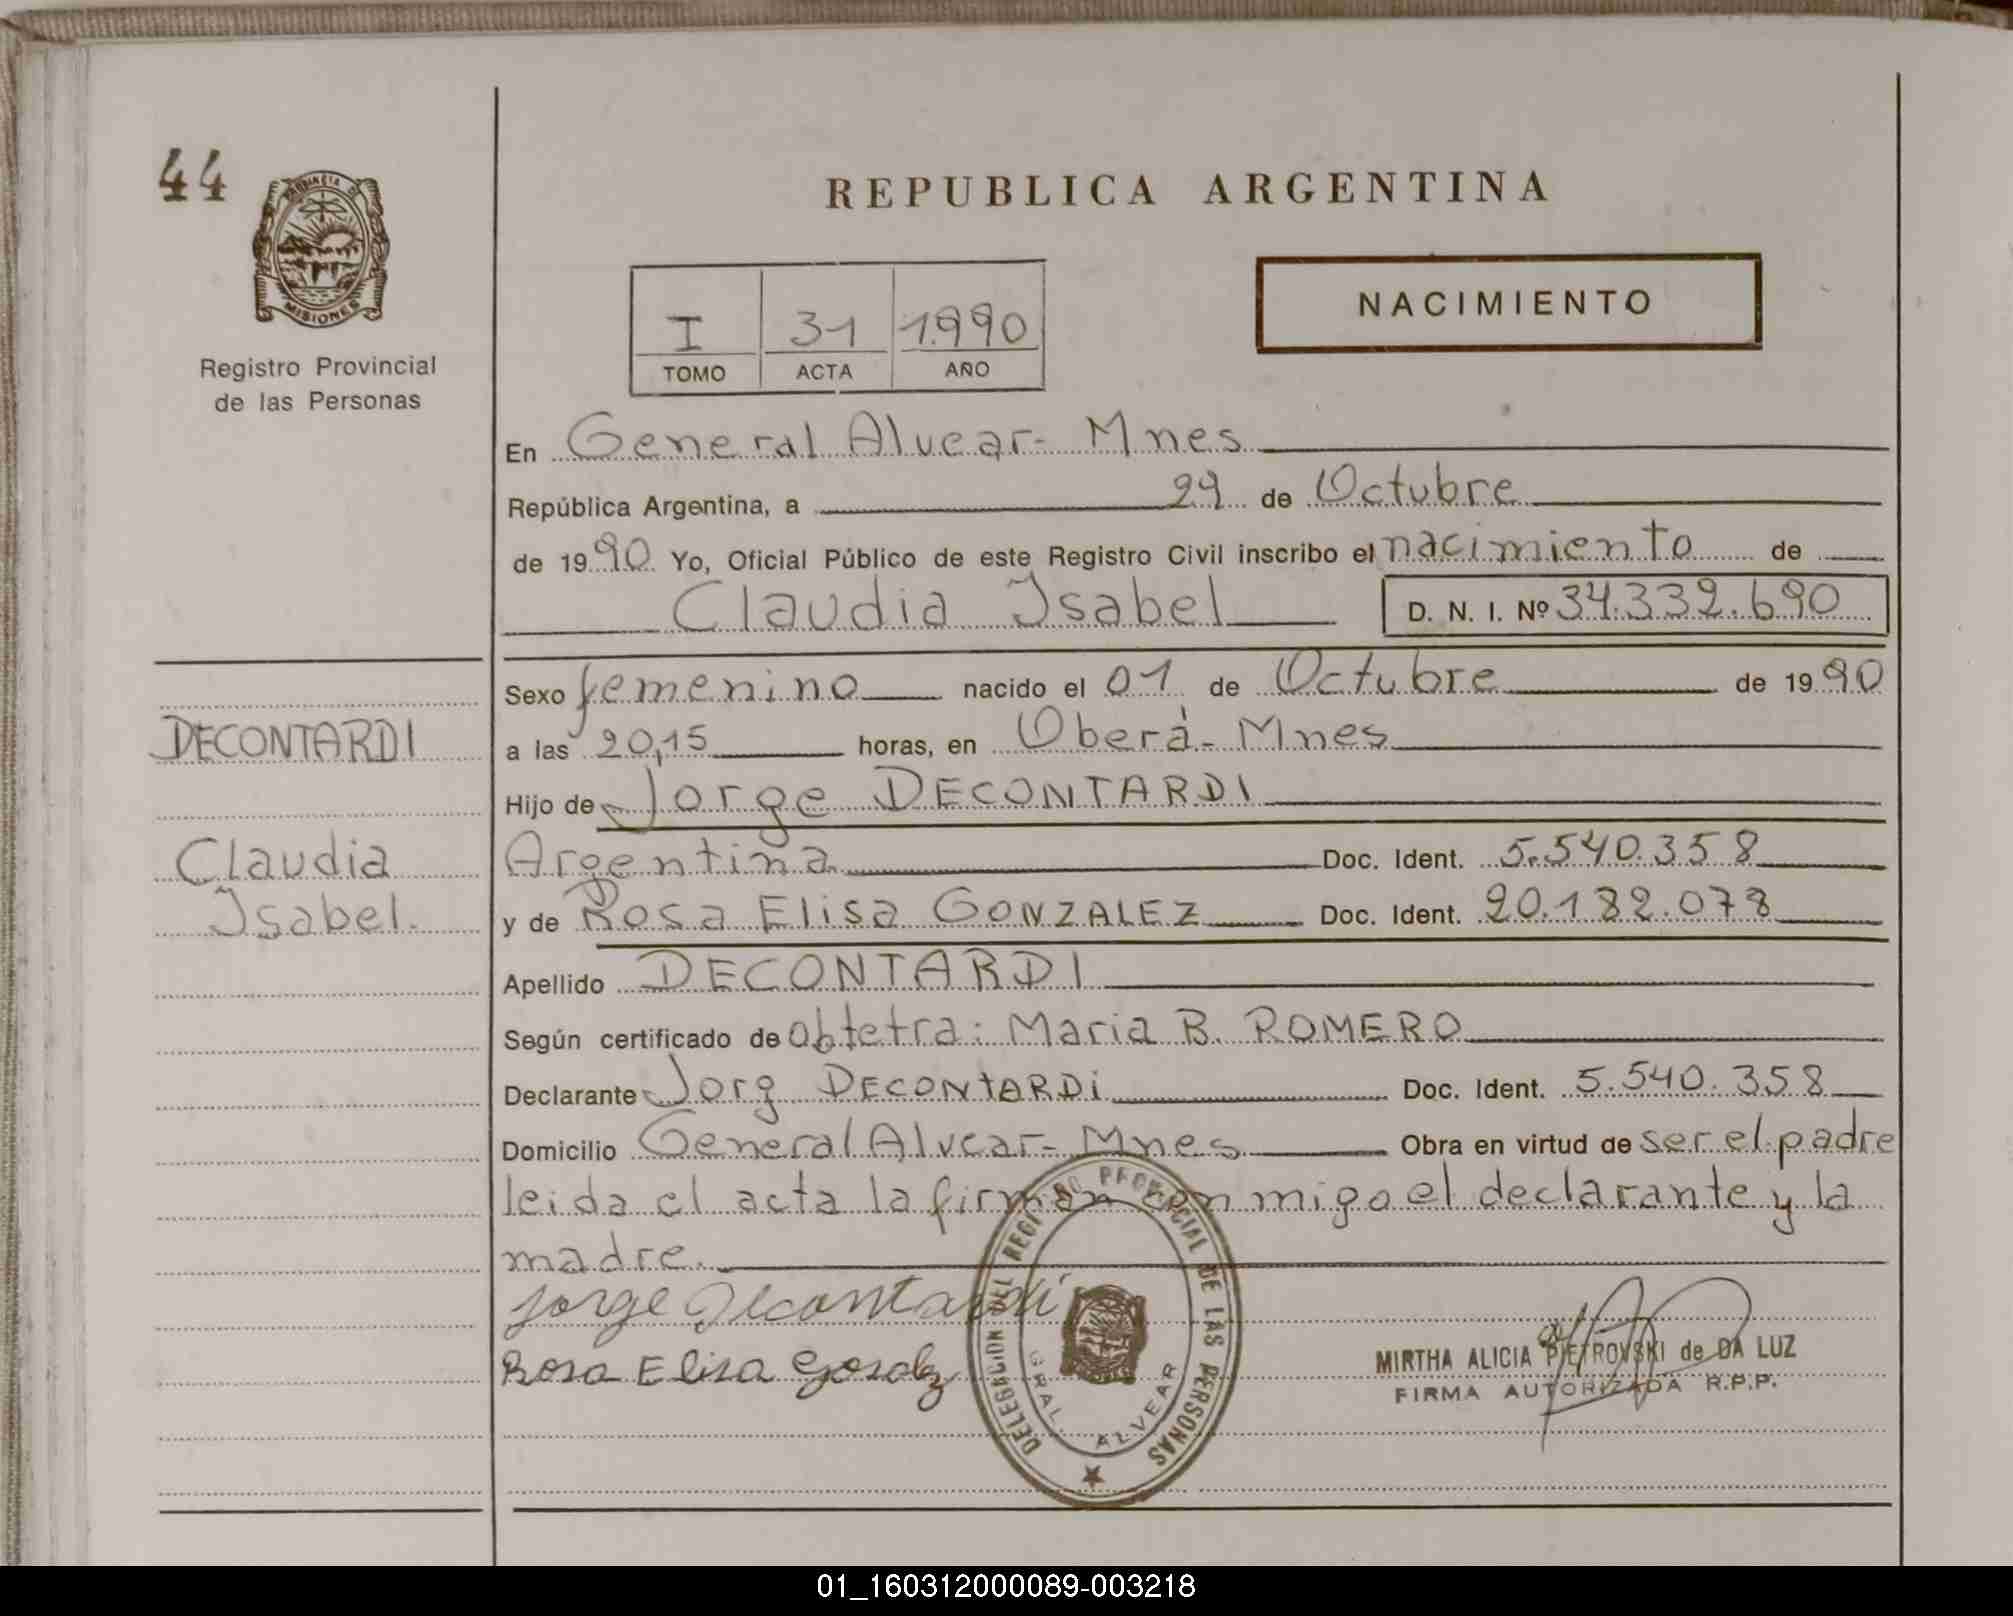 44
PROVINCIA DE
MISIONES
Registro Provincial
de las Personas
REPUBLICA ARGENTINA
I 31 1.990
TOMO ACTA AÑO
NACIMIENTO
En General Alvear- Mnes
República Argentina, a 29 de Octubre
de 1990 Yo, Oficial Público de este Registro Civil inscribo el nacimiento de
Claudia Isabel D. N. I. Nº 34.332.690
Sexo femenino nacido el 01 de Octubre de 1990
a las 20,15 horas, en Oberá- Mnes
Hijo de Jorge DECONTARDI
Argentina Doc. Ident. 5.540.358
y de Rosa Elisa GONZALEZ Doc. Ident. 20.182.078
Apellido DECONTARDI
Según certificado de obtetra: Maria B. ROMERO
Declarante Jorg DECONTARDi Doc. Ident. 5.540.358
Domicilio General Alvear- Mnes Obra en virtud de ser el padre
leida el acta la firman con migo el declarante y la
madre.
Jorge Decontardi
Rosa Elisa
DECONTARDI
Claudia
Isabel.
DELEGACION DEL REGISTRO PROVINCIAL DE LAS PERSONAS
GRAL. ALVEAR
MIRTHA ALICIA PIETROVSKI de DA LUZ
FIRMA AUTORIZADA R.P.P.
01_160312000089-003218